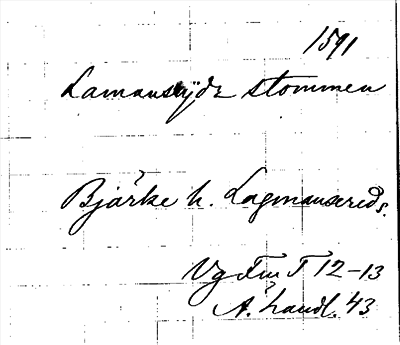 1591
Lamansrydz stommen
Bjärke h. Lagmansereds.
Vg Fin T 12-13
Å. handl. 43